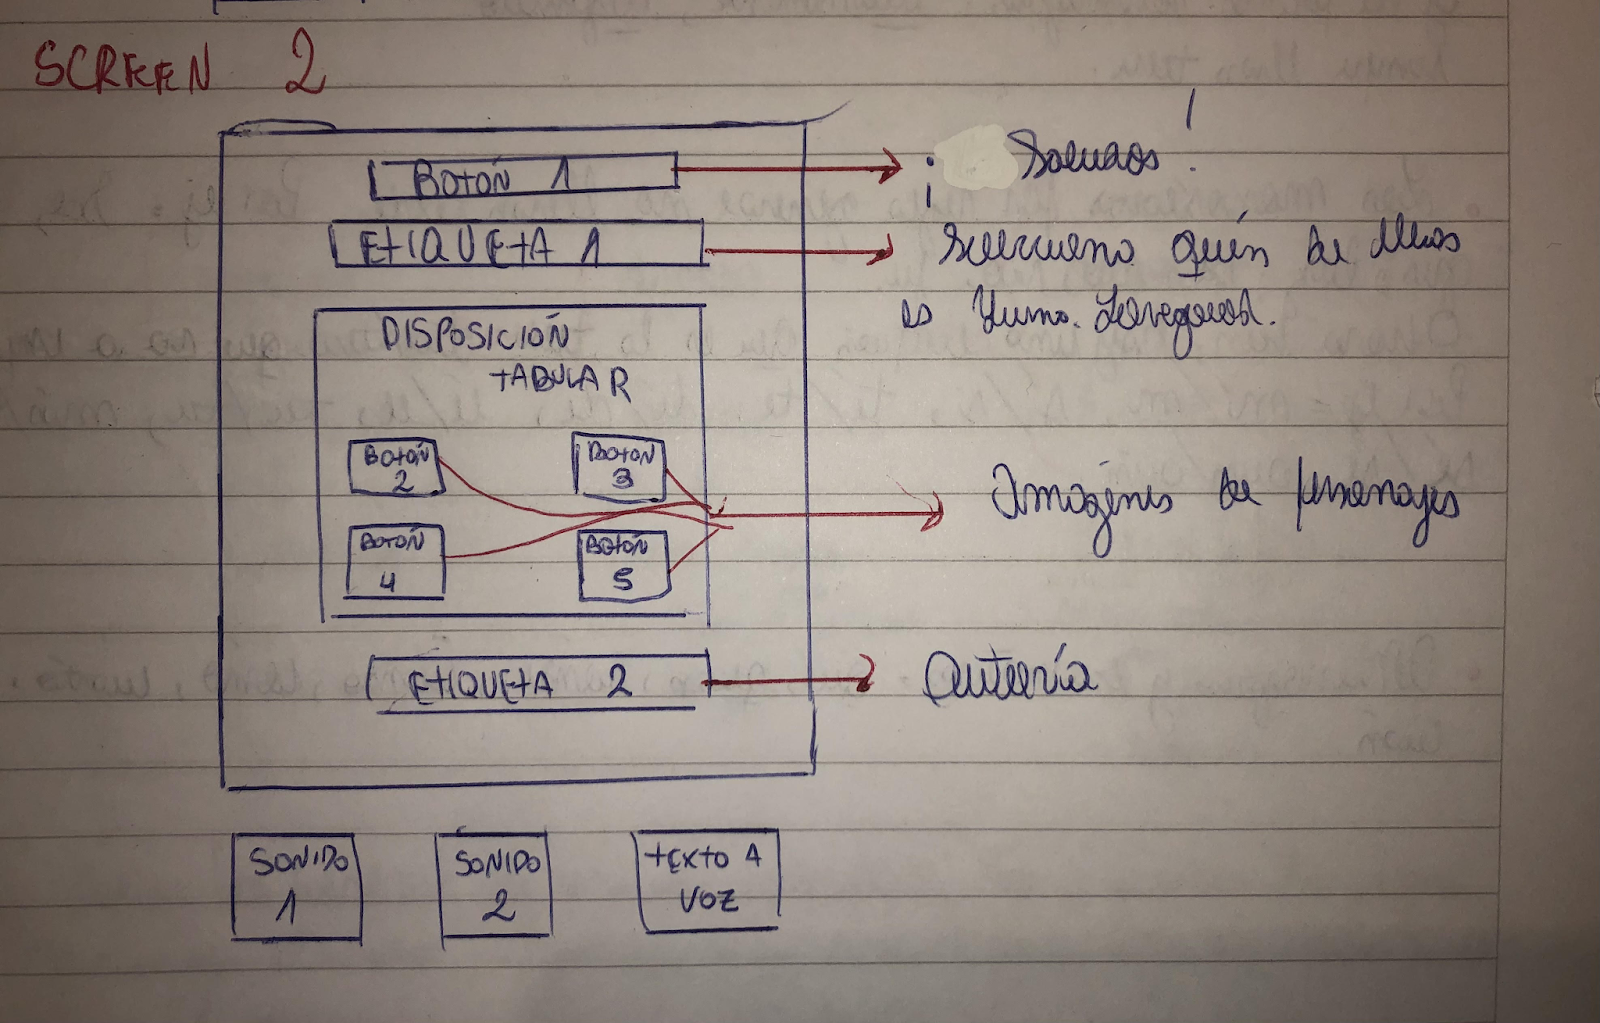 SCREEN 2
BOTÓN 1
¡ Soluados!
ETIQUETA 1
Selecciona quién de ellos
es
DISPOSICIÓN
TABULAR
BOTÓN
2
BOTÓN
3
Imágenes de personajes
BOTÓN
4
BOTÓN
5
ETIQUETA 2
Autoría
SONIDO
1
SONIDO
2
TEXTO A
VOZ